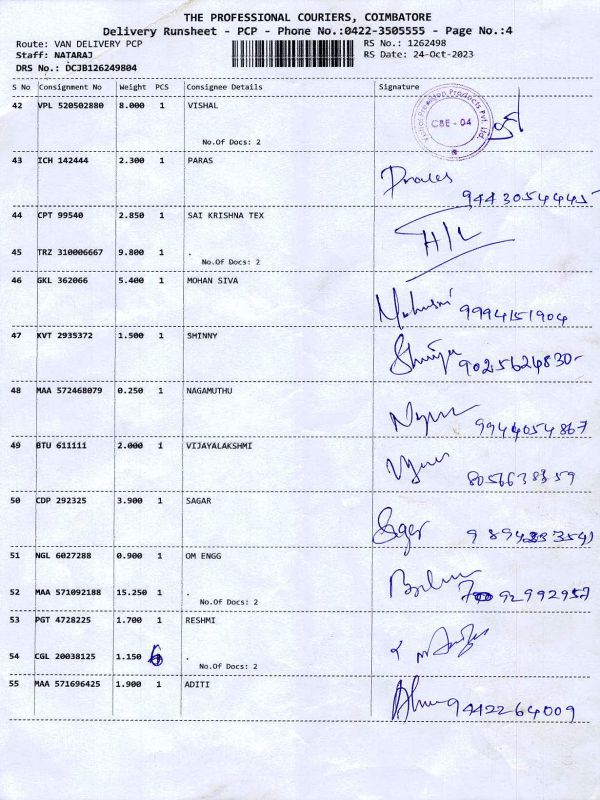 THE PROFESSIONAL COURIERS, COIMBATORE
Delivery Runsheet - PCP - Phone No.:0422-3505555 - Page No.:4
Route: VAN DELIVERY PCP RS No.: 1262498
Staff: NATARAJ RS Date: 24-Oct-2023
DRS No.: DCJB126249804
S No Consignment No Weight PCS Consignee Details Signature
42 VPL 520502880 8.000 1 VISHAL
CBE - 04
No.Of Docs: 2
43 ICH 142444 2.300 1 PARAS
9443054445
44 CPT 99540 2.850 1 SAI KRISHNA TEX
H/L
45 TRZ 310006667 9.800 1 .
No.Of Docs: 2
46 GKL 362066 5.400 1 MOHAN SIVA
9994151904
47 KVT 2935372 1.500 1 SHINNY
9025624830
48 MAA 572468079 0.250 1 NAGAMUTHU
9944054867
49 BTU 611111 2.000 1 VIJAYALAKSHMI
8056638359
50 CDP 292325 3.900 1 SAGAR
Sagar
51 NGL 6027288 0.900 1 OM ENGG
52 MAA 571092188 15.250 1 .
No.Of Docs: 2
53 PGT 4728225 1.700 1 RESHMI
54 CGL 20038125 1.150 6 .
No.Of Docs: 2
55 MAA 571696425 1.900 1 ADITI
9442264009